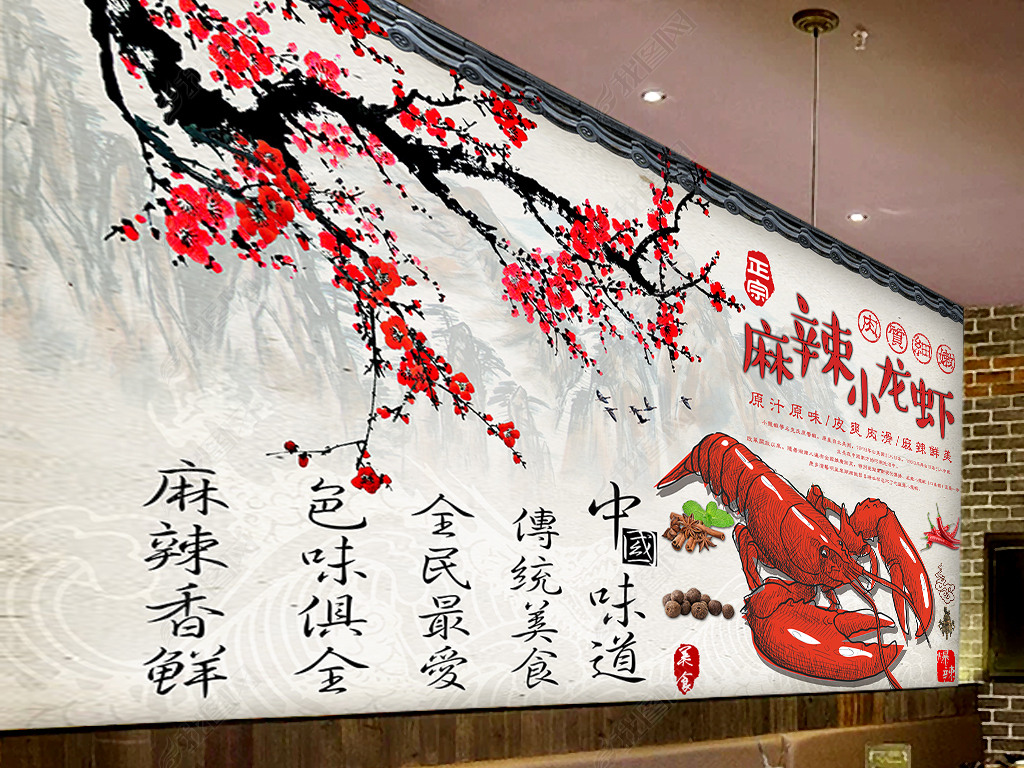 正宗
肉質細嫩
麻辣小龙虾
原汁原味/皮爽肉滑/麻辣鲜美
中國味道
傳統美食
全民最愛
色味俱全
麻辣香鲜
美食